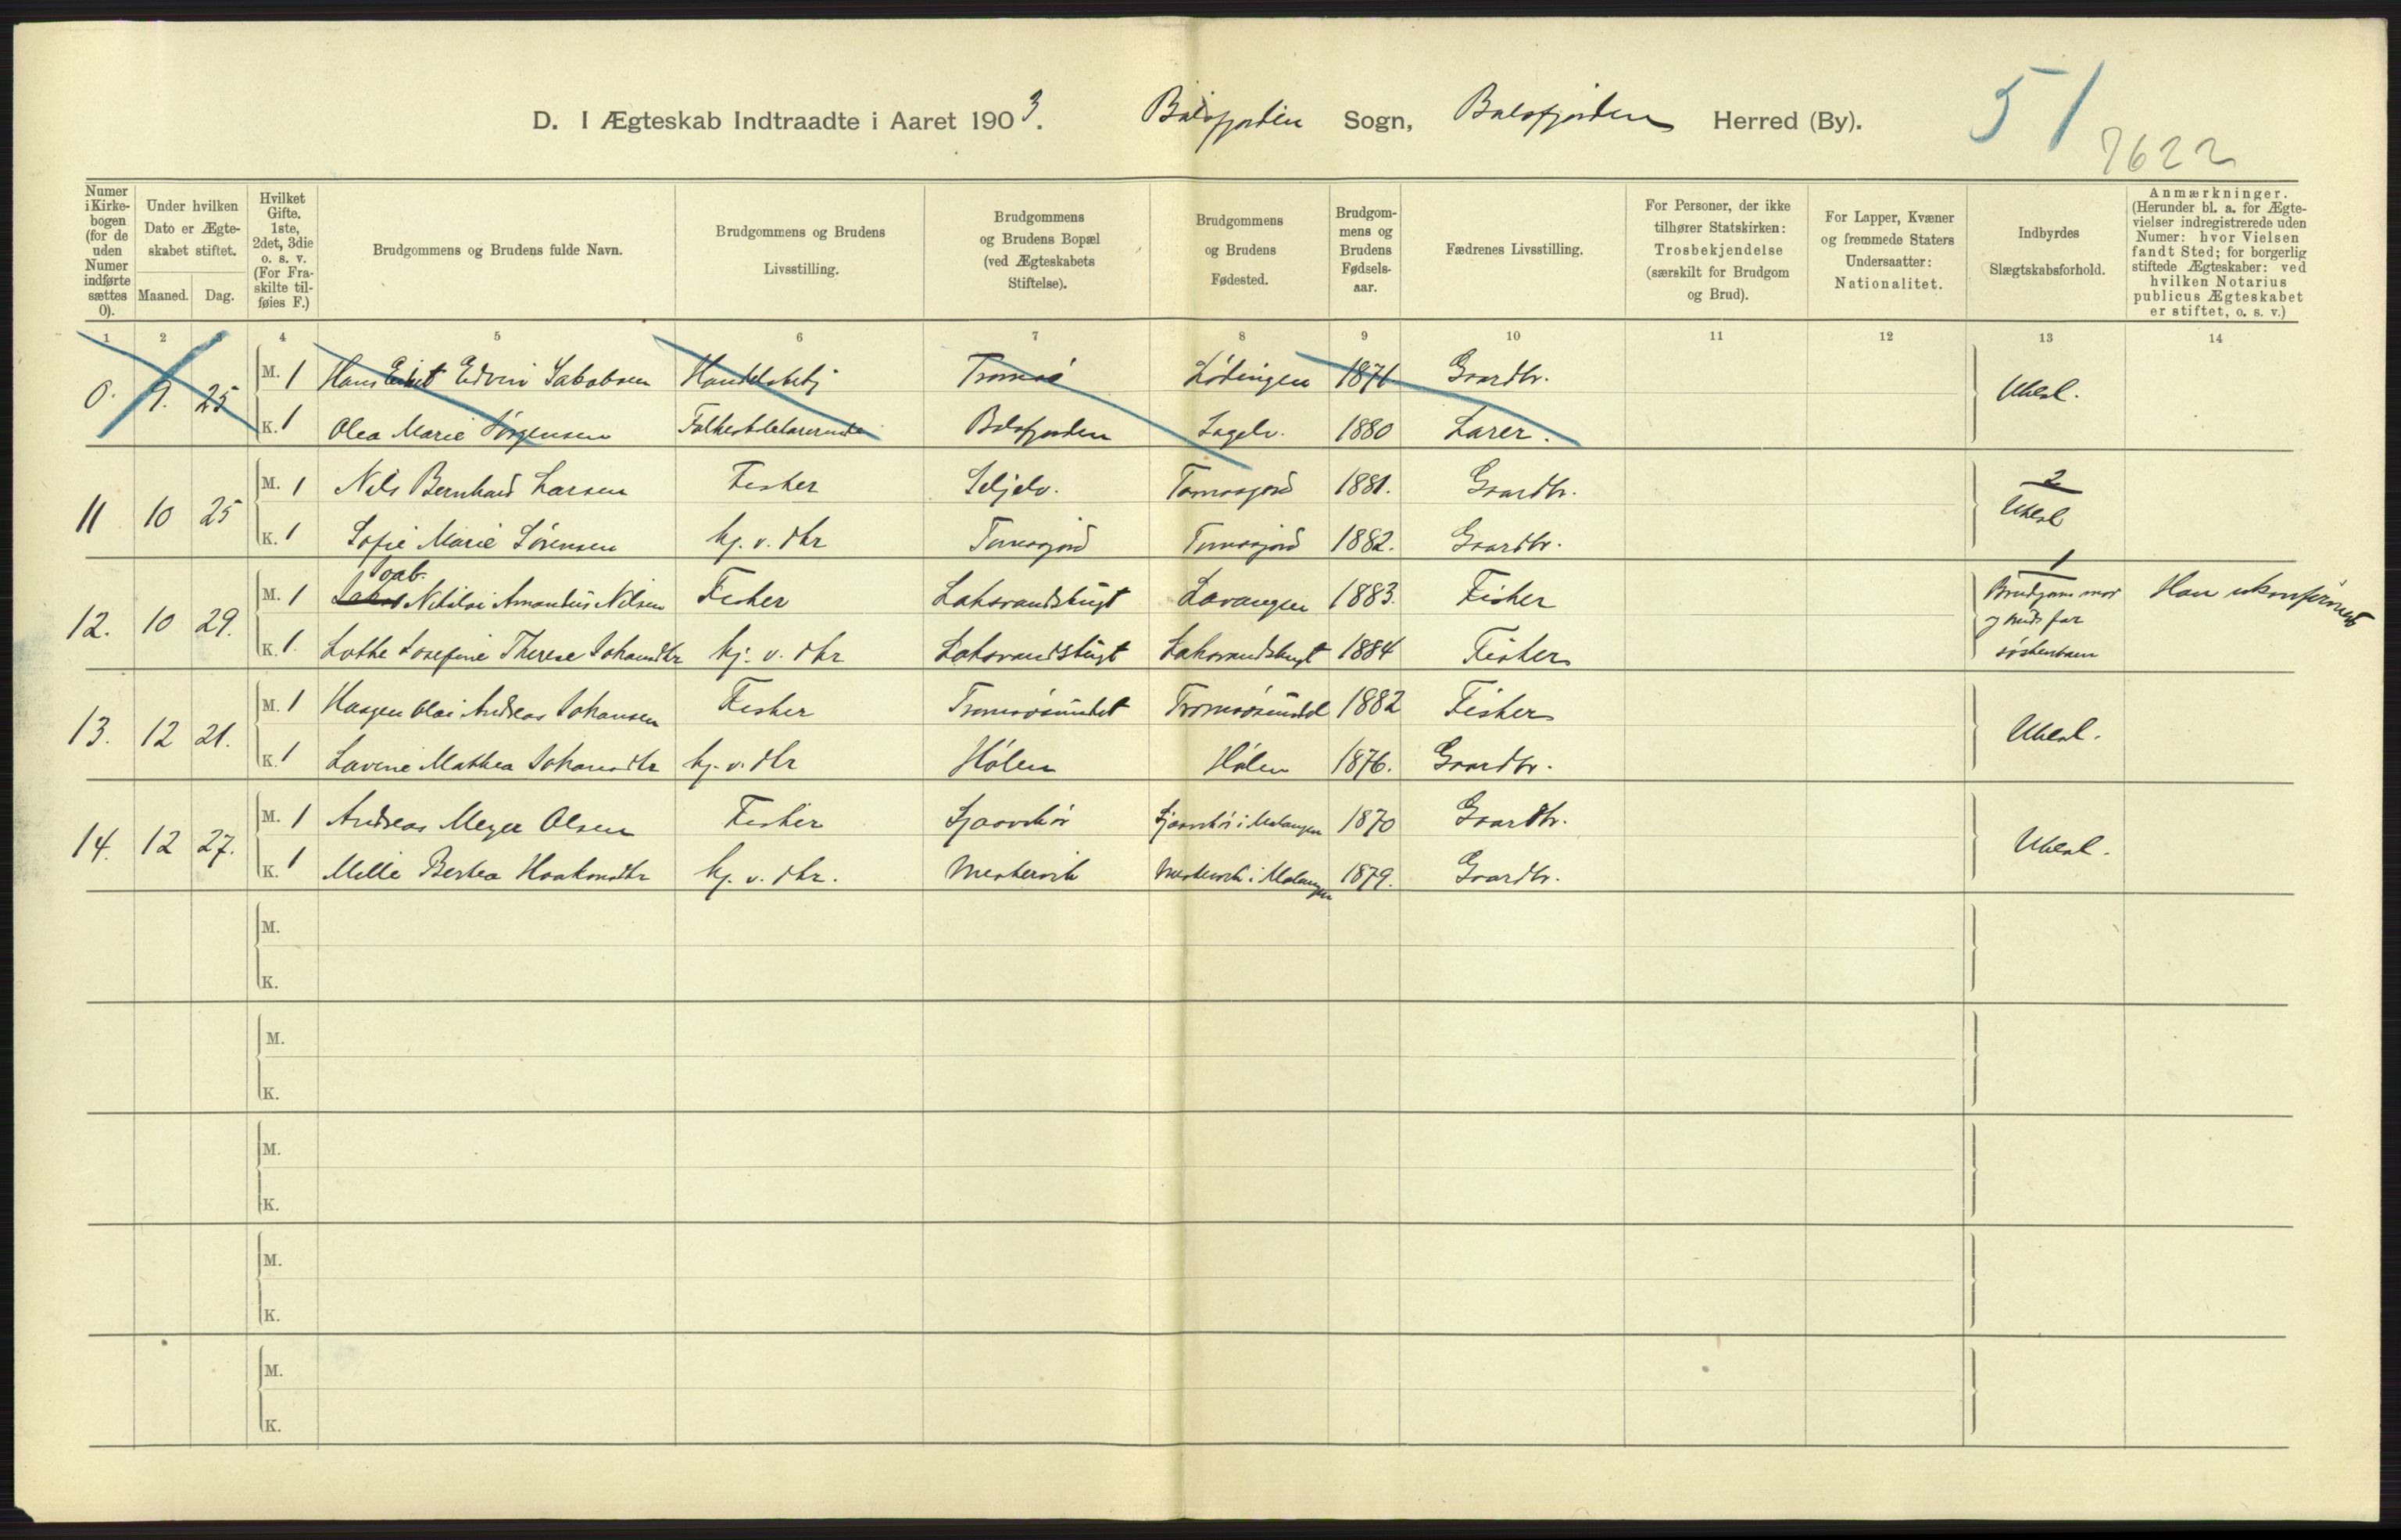 D. I Ægteskab Indtraadte i Aaret 1903. Balsfjorden Sogn, Balsfjorden Herred (By). 51
7622
Numer i Kirkebogen (for de uden Numer indførte sættes 0). Under hvilken Dato er Ægteskabet stiftet. Maaned. Dag. Hvilket Gifte. 1ste, 2det, 3die o. s. v. (For Fraskilte tilføies F.) Brudgommens og Brudens fulde Navn. Brudgommens og Brudens Livsstilling. Brudgommens og Brudens Bopæl (ved Ægteskabets Stiftelse). Brudgommens og Brudens Fødested. Brudgommens og Brudens Fødselsaar. Fædrenes Livsstilling. For Personer, der ikke tilhører Statskirken: Trosbekjendelse (særskilt for Brudgom og Brud). For Lapper, Kvæner og fremmede Staters Undersaatter: Nationalitet. Indbyrdes Slægtskabsforhold. Anmærkninger. (Herunder bl. a. for Ægtevielser indregistrerede uden Numer: hvor Vielsen fandt Sted; for borgerlig stiftede Ægteskaber: ved hvilken Notarius publicus Ægteskabet er stiftet, o. s. v.)
1 2 3 4 5 6 7 8 9 10 11 12 13 14
0. 9. 25 M. 1 Hans Edvin Jakobsen Handelsbetj Tromsø Lødingen 1871 Gaardbr. Ubesl.
K. 1 Olea Marie Jørgensen Folkeskolelærerinde Balsfjorden Sagelv. 1880 Lærer.
11 10 25 M. 1 Nils Bernhard Larsen Fisker Seljelv. Tomasjord 1881. Gaardbr. 2 Ubesl
K. 1 Sofie Marie Sørensen hj. v. dtr Tomasjord Tomasjord 1882. Gaardbr.
12. 10 29. M. 1 Joab. Nikolai Amandus Nilsen Fisker Laksvandsbugt Lavangen 1883. Fisker 1 Brudgoms mor Han ukonfirmeret
og bruds far
K. 1. Lothe Josefine Therese Johansdtr hj. v. dtr Laksvandsbugt Laksvandsbugt 1884 Fisker søskenbarn
13. 12 21. M. 1 Haagen Olai Andreas Johansen Fisker Tromsøsundet Tromsøsundet 1882 Fisker Ubesl.
K. 1 Lavine Mathea Johansdtr hj. v. dtr Hølen Hølen 1876. Gaardbr.
14. 12 27. M. 1 Andreas Meyer Olsen Fisker Sjaavikør Sjaavikør i Malangen 1870 Gaardbr. Ubesl.
K. 1 Mille Bertea Haakonsdtr hj. v. dtr. Mestervik Mestervik i Malangen 1879. Gaardbr.
M.
K.
M.
K.
M.
K.
M.
K.
M.
K.